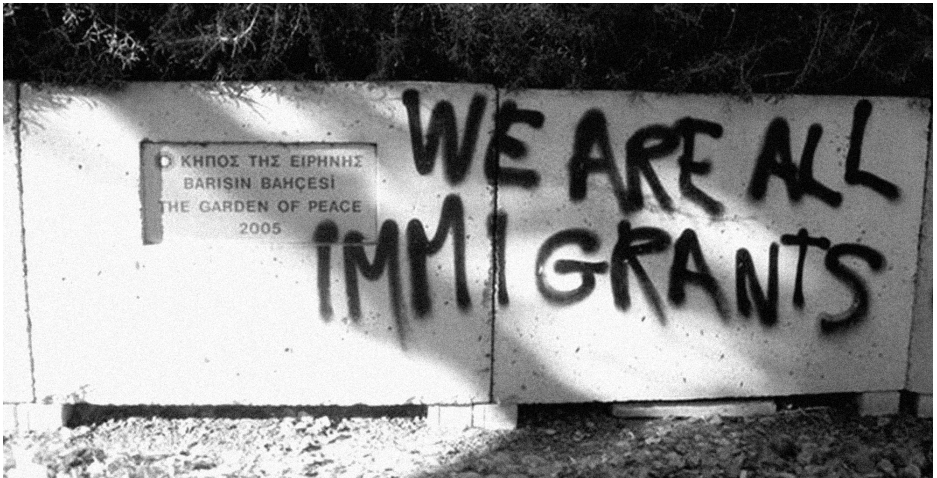 Ο ΚΗΠΟΣ ΤΗΣ ΕΙΡΗΝΗΣ
BARIŞIN BAHÇESİ
THE GARDEN OF PEACE
2005
WE ARE ALL
IMMIGRANTS